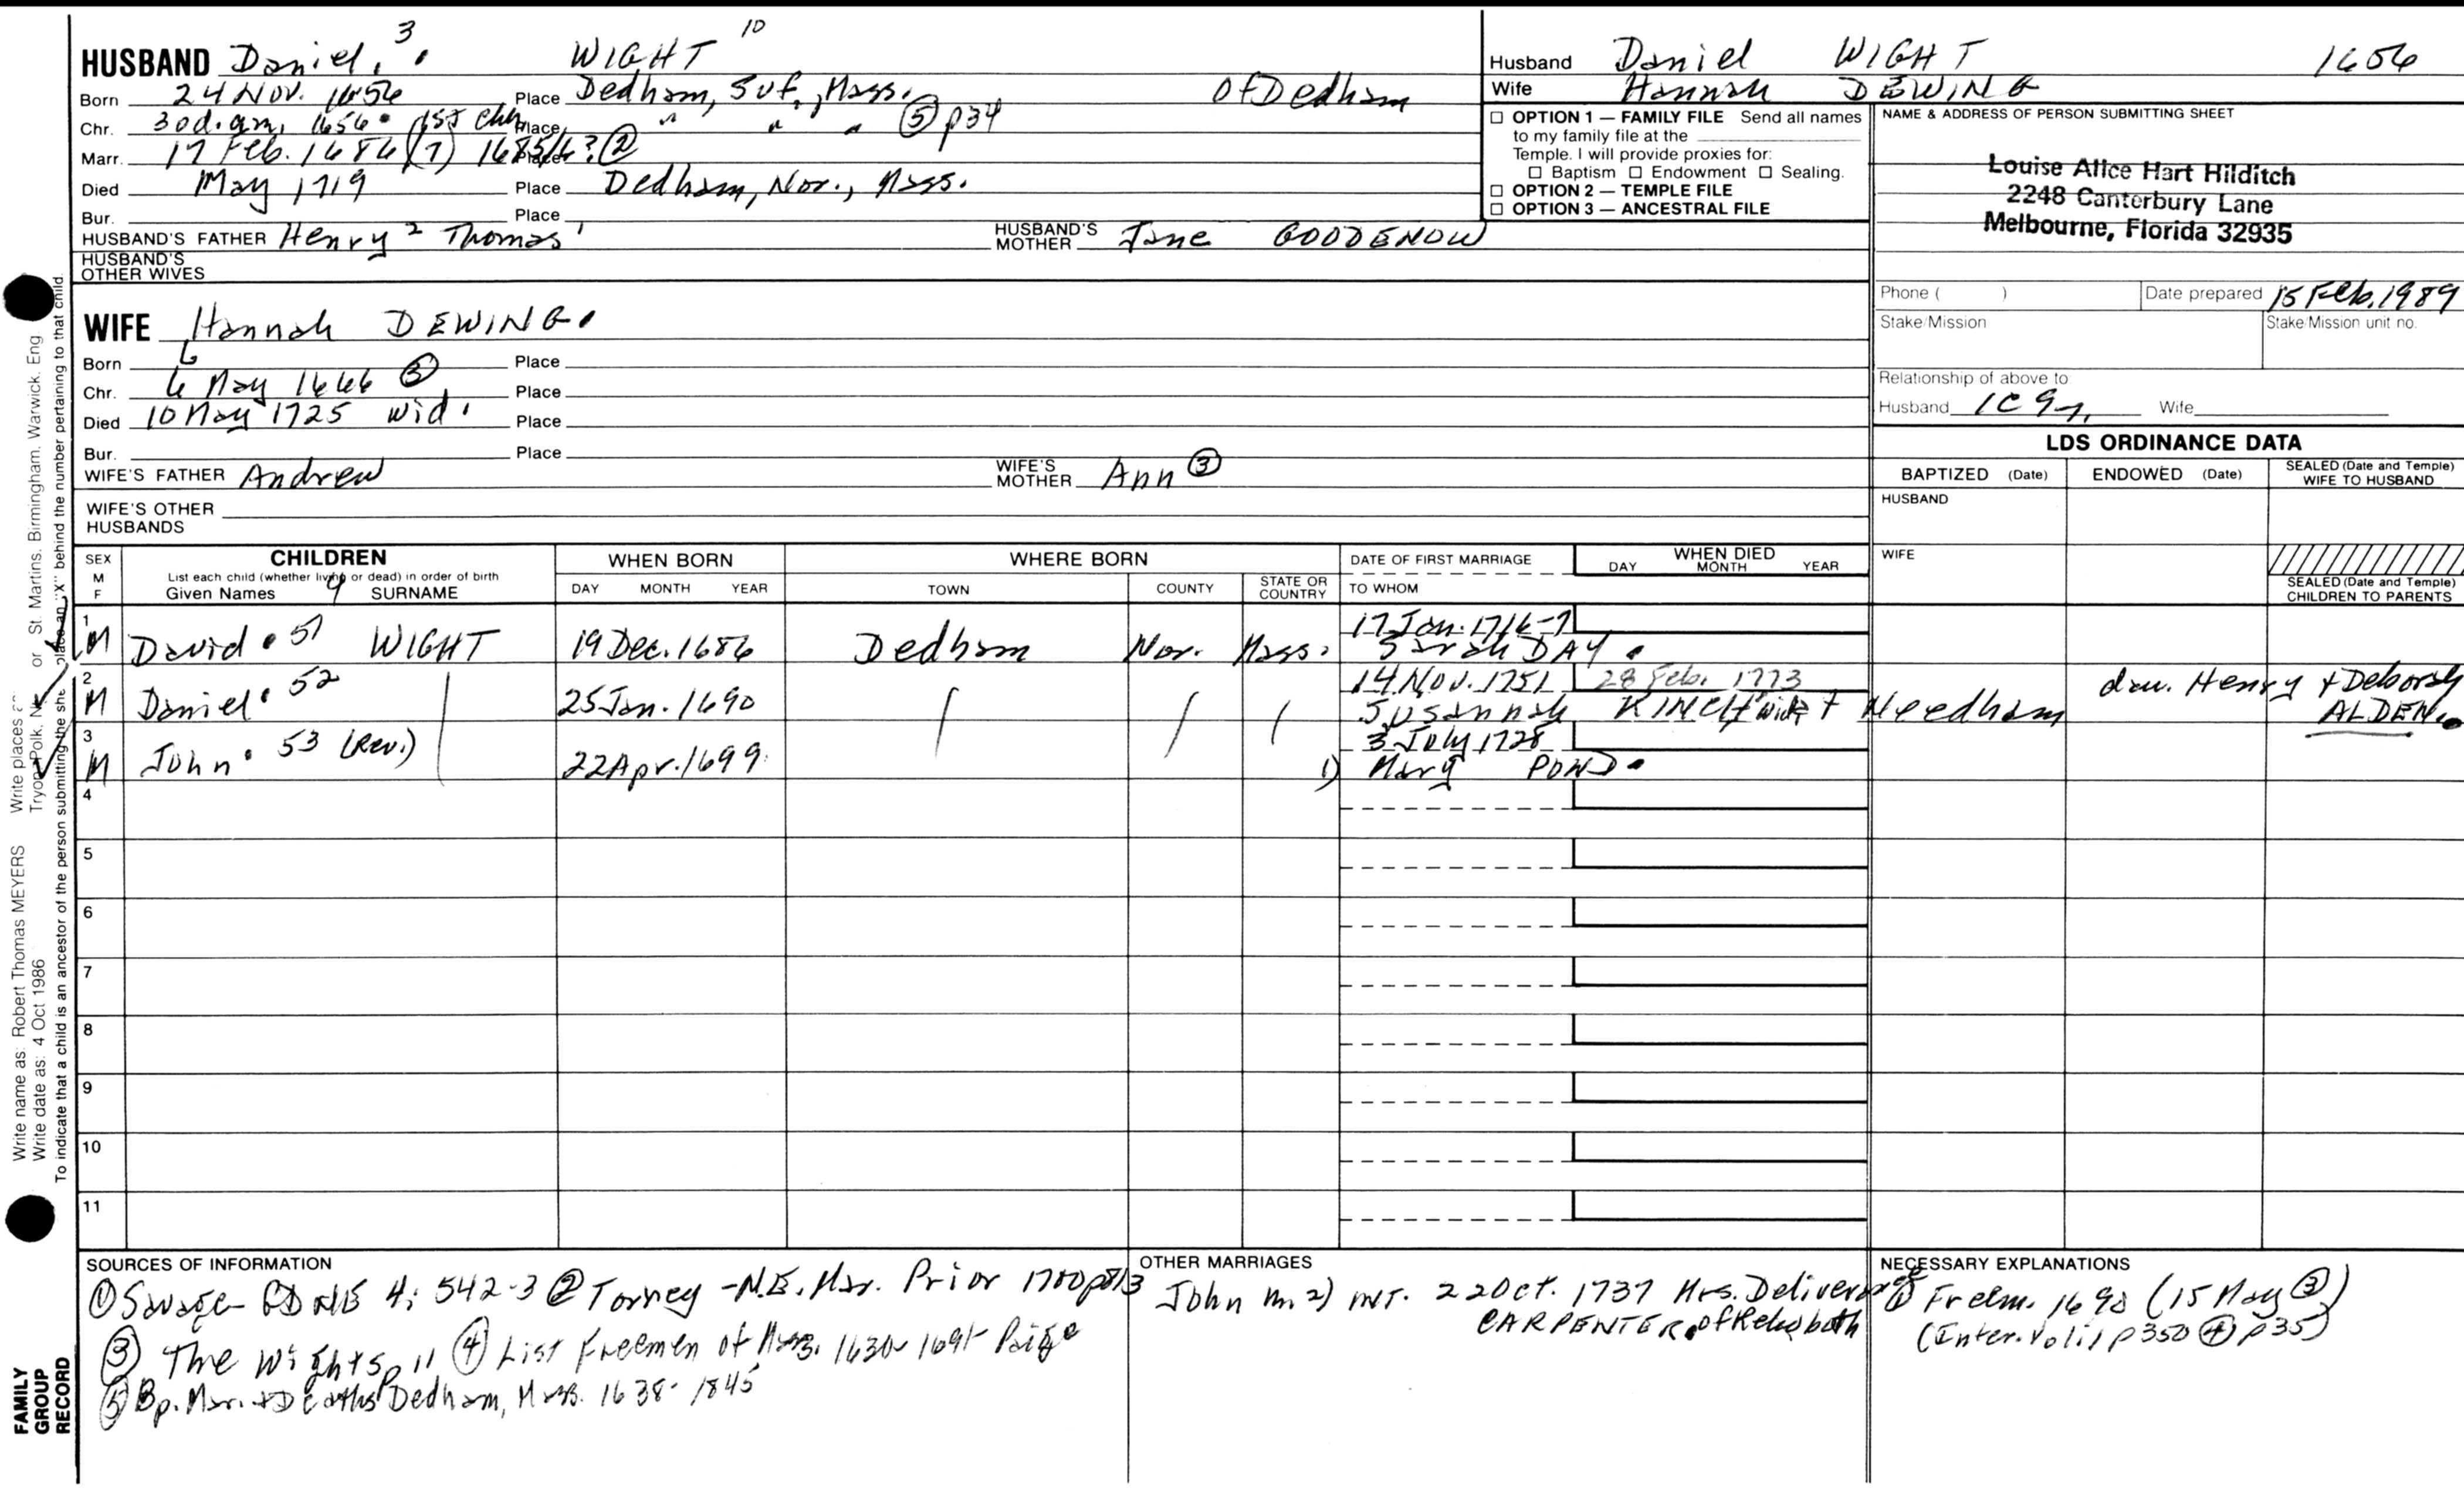 HUSBAND Daniel, 3 WIGHT 10
Born 24 Nov. 1656 Place Dedham, Suf., Mass. Of Dedham
Chr. 30d. 9m, 1656 1st Chh Place " " " ⑤ p34
Marr. 17 Feb. 1686 (7) 1685/6? ② Place
Died May 1719 Place Dedham, Nor., Mass.
Bur. Place
HUSBAND'S FATHER Henry 2 Thomas 1 HUSBAND'S MOTHER Jane GOODENOW
HUSBAND'S OTHER WIVES
Husband Daniel WIGHT 1656
Wife Hannah DEWING
☐ OPTION 1 — FAMILY FILE Send all names
to my family file at the
Temple. I will provide proxies for:
☐ Baptism ☐ Endowment ☐ Sealing.
☐ OPTION 2 — TEMPLE FILE
☐ OPTION 3 — ANCESTRAL FILE
NAME & ADDRESS OF PERSON SUBMITTING SHEET
Louise Alice Hart Hilditch
2248 Canterbury Lane
Melbourne, Florida 32935
Phone ( ) Date prepared 15 Feb. 1989
Stake/Mission Stake/Mission unit no.
Relationship of above to
Husband 1C 9 Wife
WIFE Hannah DEWING.
Born Place
Chr. 6 May 1666 ③ Place
Died 10 May 1725 wid. Place
Bur. Place
WIFE'S FATHER Andrew WIFE'S MOTHER Ann ③
WIFE'S OTHER
HUSBANDS
LDS ORDINANCE DATA
BAPTIZED (Date) ENDOWED (Date) SEALED (Date and Temple) WIFE TO HUSBAND
HUSBAND
WIFE
SEALED (Date and Temple) CHILDREN TO PARENTS
SEX M F CHILDREN WHEN BORN WHERE BORN DATE OF FIRST MARRIAGE WHEN DIED
List each child (whether living or dead) in order of birth DAY MONTH YEAR TOWN COUNTY STATE OR COUNTRY TO WHOM DAY MONTH YEAR
Given Names 9 SURNAME
1 17 Jan. 1716-7
M David 51 WIGHT 19 Dec. 1686 Dedham Nor. Mass. Sarah DAY
2 14 Nov. 1751 28 Feb. 1773
M Daniel 52 25 Jan. 1690 Susannah Needham dau. Henry & Deborah ALDEN
3 3 July 1728
M John 53 (Rev.) 22 Apr. 1699 1) Mary POND
4
5
6
7
8
9
10
11
SOURCES OF INFORMATION
① Savage GD NE 4: 542-3 ② Torrey -N.E. Mar. Prior 1700 p813
③ The Wights p 11 ④ List Freemen of Mass. 1630-1691- Paige
⑤ Bp. Marr. + Deaths Dedham, Mass. 1638-1845
OTHER MARRIAGES
John m. 2) int. 22 Oct. 1737 Mrs. Deliverance
CARPENTER of Rehoboth
NECESSARY EXPLANATIONS
① Freem. 1690 (15 May ③)
(Inter. Vol. 1 p350 ④ p35)
Write name as: Robert Thomas MEYERS Write places
Write date as: 4 Oct 1986 Tryon, Polk, or St. Martins, Birmingham, Warwick, Eng
To indicate that a child is an ancestor of the person submitting the place an "X" behind the number pertaining to that child.
FAMILY
GROUP
RECORD